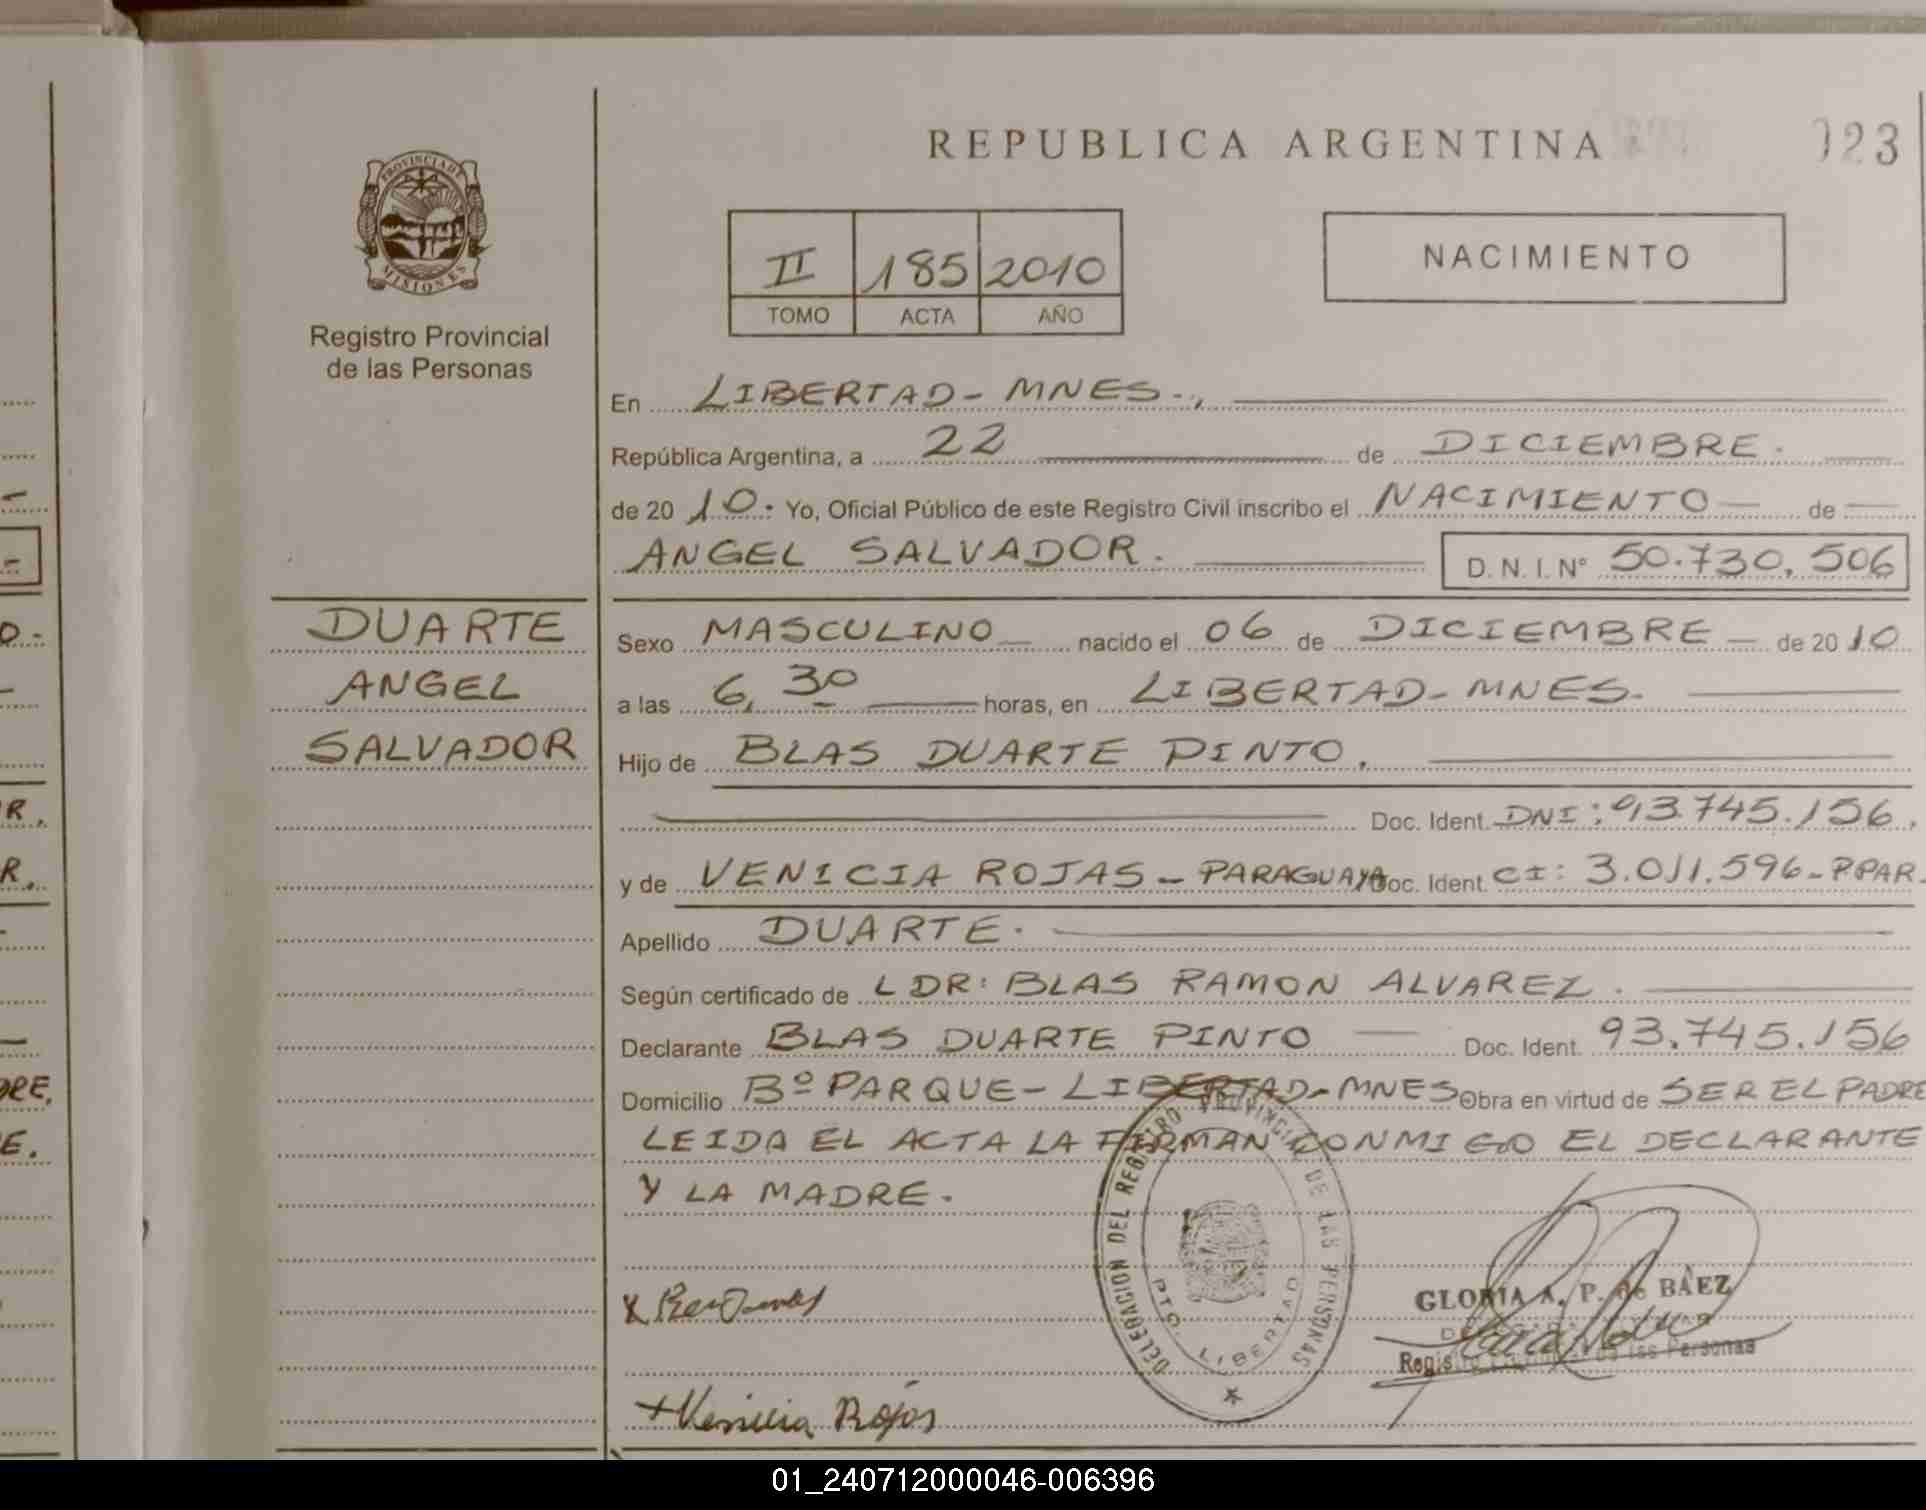 REPUBLICA ARGENTINA
023
PROVINCIA DE
MISIONES
Registro Provincial
de las Personas
II 185 2010
TOMO ACTA AÑO
NACIMIENTO
En LIBERTAD - MNES.,
República Argentina, a 22 de DICIEMBRE.
de 20 10. Yo, Oficial Público de este Registro Civil inscribo el NACIMIENTO de
ANGEL SALVADOR. D. N. I. N° 50.730.506
DUARTE
ANGEL
SALVADOR
Sexo MASCULINO nacido el 06 de DICIEMBRE de 20 10
a las 6,30 horas, en LIBERTAD - MNES.
Hijo de BLAS DUARTE PINTO.
Doc. Ident. DNI: 93.745.156.
y de VENICIA ROJAS - PARAGUAYA Doc. Ident. CI: 3.011.596 - P.PAR.
Apellido DUARTE.
Según certificado de LDR: BLAS RAMON ALVAREZ.
Declarante BLAS DUARTE PINTO Doc. Ident. 93.745.156
Domicilio Bº PARQUE - LIBERTAD - MNES Obra en virtud de SER EL PADRE
LEIDA EL ACTA LA FIRMAN CONMIGO EL DECLARANTE
Y LA MADRE.
DELEGACION DEL REGISTRO PROVINCIAL DE LAS PERSONAS
PTO. LIBERTAD
GLORIA A. P. de BAEZ
Registro Provincial de las Personas
+ Venicia Rojas
01_240712000046-006396